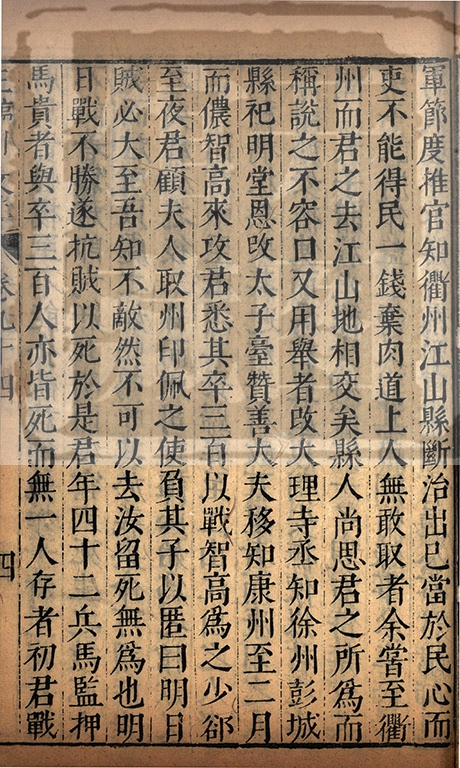 軍節度推官知衢州江山縣斷治出已當於民心而
吏不能得民一錢棄肉道上人無敢取者余嘗至衢
州而君之去江山地相交矣縣人尚思君之所爲而
稱說之不容口又用舉者改大理寺丞知徐州彭城
縣祀明堂恩改太子臺贊善大夫移知康州至二月
而儂智高來攻君悉其卒三百以戰智高爲之少郤
至夜君顧夫人取州印佩之使負其子以匿曰明日
賊必大至吾知不敵然不可以去汝留死無爲也明
日戰不勝遂抗賊以死於是君年四十二兵馬監押
馬貴者與卒三百人亦皆死而無一人存者初君戰
卷九十四
四